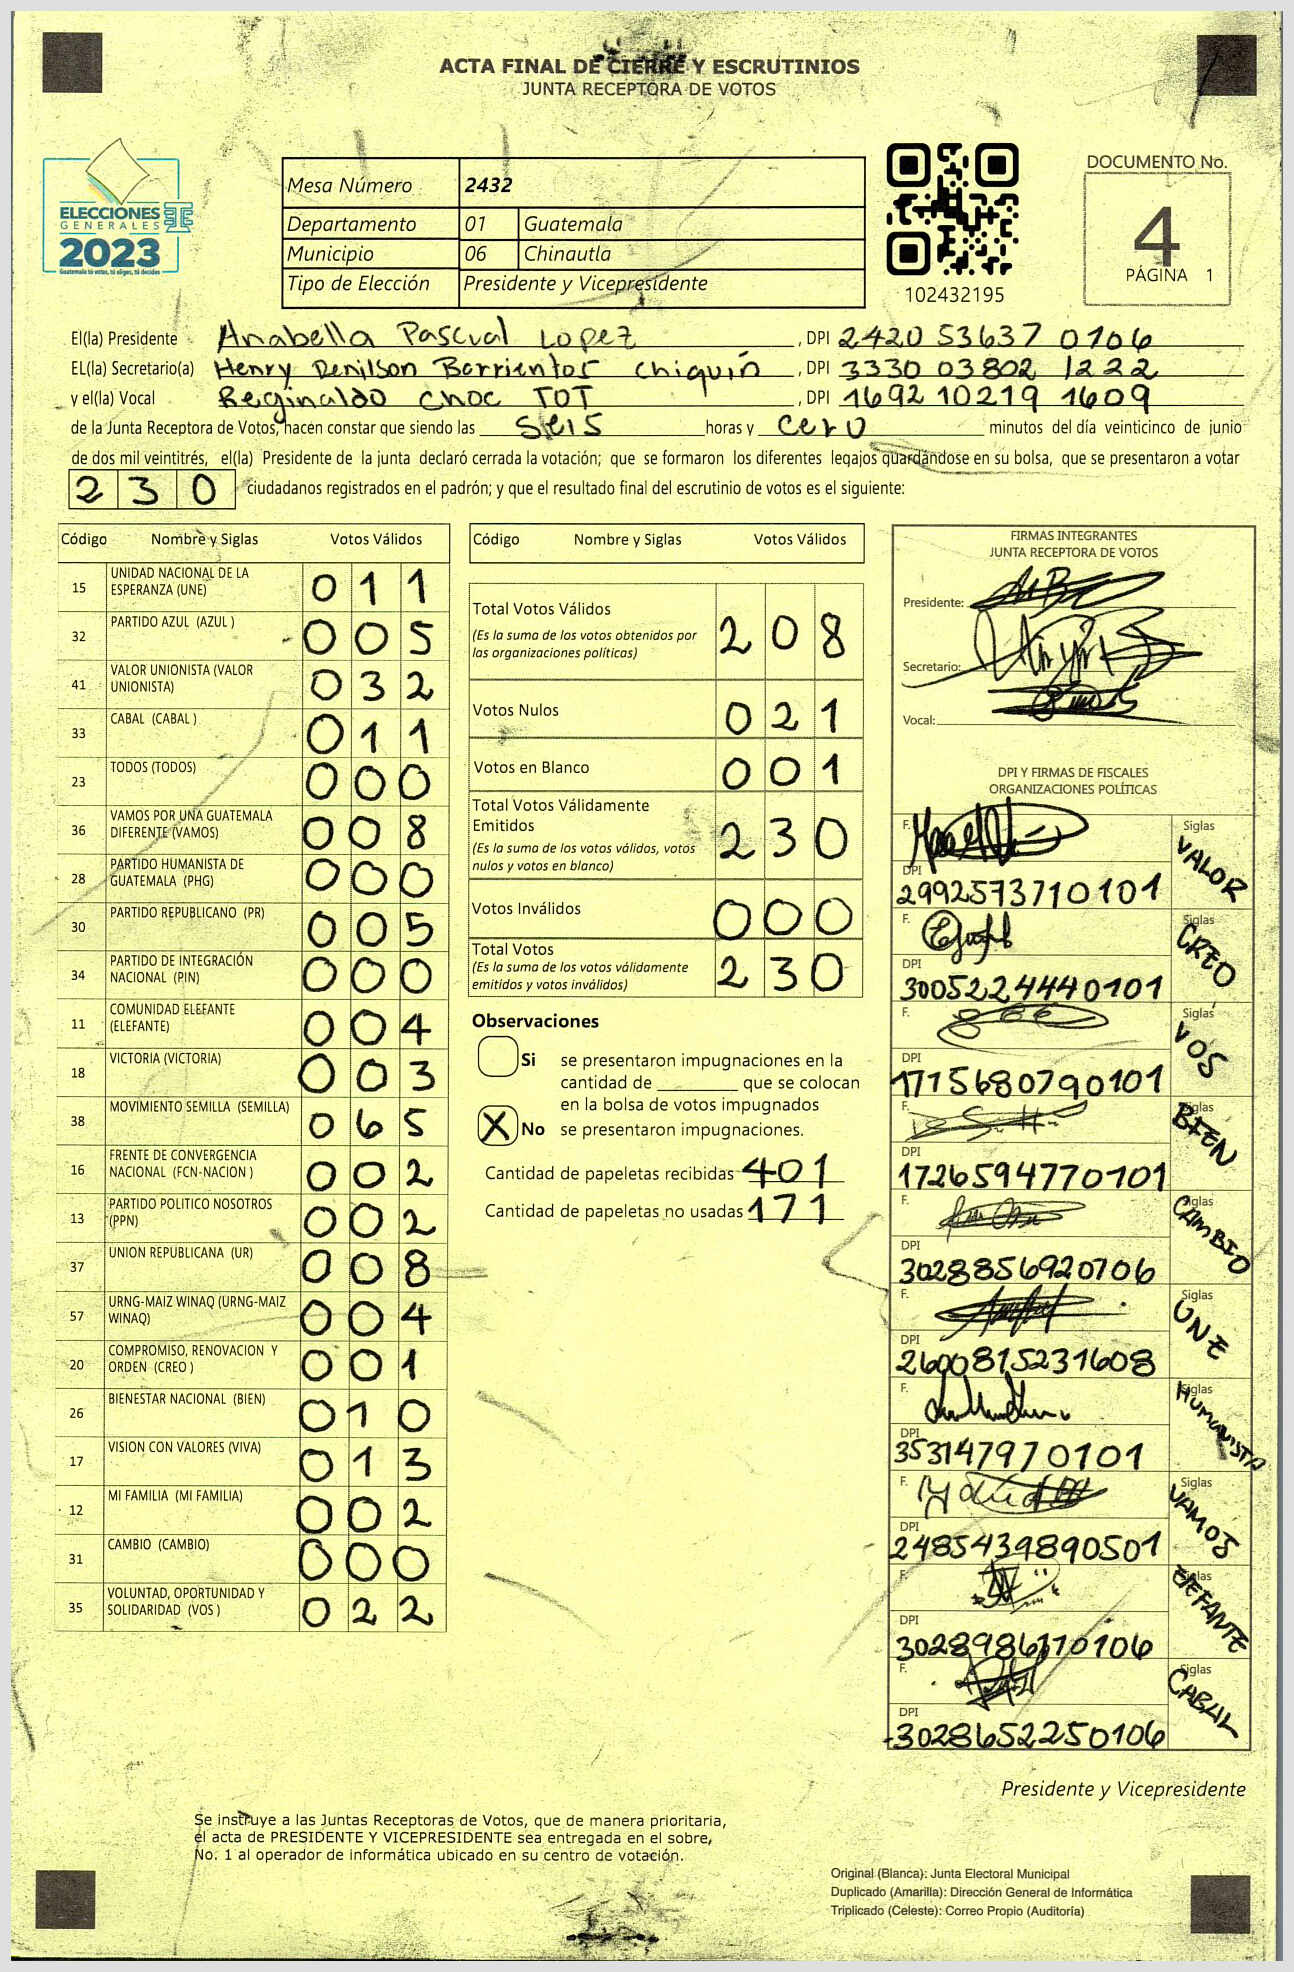 ACTA FINAL DE CIERRE Y ESCRUTINIOS
JUNTA RECEPTORA DE VOTOS
ELECCIONES
GENERALES
2023
Guatemala tú votas, tú eliges, tú decides
Mesa Número 2432
Departamento 01 Guatemala
Municipio 06 Chinautla
Tipo de Elección Presidente y Vicepresidente
102432195
DOCUMENTO No.
4
PÁGINA 1
El(la) Presidente Anabella Pascual Lopez, DPI 2420 53637 0106
EL(la) Secretario(a) Henry Denilson Barrientos Chiquín, DPI 3330 03802 1222
y el(la) Vocal Reginaldo Choc TOT, DPI 1692 10219 1609
de la Junta Receptora de Votos, hacen constar que siendo las seis horas y cero minutos del día veinticinco de junio
de dos mil veintitrés, el(la) Presidente de la junta declaró cerrada la votación; que se formaron los diferentes legajos guardándose en su bolsa, que se presentaron a votar
230 ciudadanos registrados en el padrón; y que el resultado final del escrutinio de votos es el siguiente:
Código Nombre y Siglas Votos Válidos
15 UNIDAD NACIONAL DE LA ESPERANZA (UNE) 011
32 PARTIDO AZUL (AZUL ) 005
41 VALOR UNIONISTA (VALOR UNIONISTA) 032
33 CABAL (CABAL ) 011
23 TODOS (TODOS) 000
36 VAMOS POR UNA GUATEMALA DIFERENTE (VAMOS) 008
28 PARTIDO HUMANISTA DE GUATEMALA (PHG) 000
30 PARTIDO REPUBLICANO (PR) 005
34 PARTIDO DE INTEGRACIÓN NACIONAL (PIN) 000
11 COMUNIDAD ELEFANTE (ELEFANTE) 004
18 VICTORIA (VICTORIA) 003
38 MOVIMIENTO SEMILLA (SEMILLA) 065
16 FRENTE DE CONVERGENCIA NACIONAL (FCN-NACION ) 002
13 PARTIDO POLITICO NOSOTROS (PPN) 002
37 UNION REPUBLICANA (UR) 008
57 URNG-MAIZ WINAQ (URNG-MAIZ WINAQ) 004
20 COMPROMISO, RENOVACION Y ORDEN (CREO ) 001
26 BIENESTAR NACIONAL (BIEN) 010
17 VISION CON VALORES (VIVA) 013
12 MI FAMILIA (MI FAMILIA) 002
31 CAMBIO (CAMBIO) 000
35 VOLUNTAD, OPORTUNIDAD Y SOLIDARIDAD (VOS ) 022
Código Nombre y Siglas Votos Válidos
Total Votos Válidos 208
(Es la suma de los votos obtenidos por
las organizaciones políticas)
Votos Nulos 021
Votos en Blanco 001
Total Votos Válidamente
Emitidos 230
(Es la suma de los votos válidos, votos
nulos y votos en blanco)
Votos Inválidos 000
Total Votos 230
(Es la suma de los votos válidamente
emitidos y votos inválidos)
Observaciones
Si se presentaron impugnaciones en la
cantidad de ________ que se colocan
en la bolsa de votos impugnados
X No se presentaron impugnaciones.
Cantidad de papeletas recibidas 401
Cantidad de papeletas no usadas 171
FIRMAS INTEGRANTES
JUNTA RECEPTORA DE VOTOS
Presidente:
Secretario:
Vocal:
DPI Y FIRMAS DE FISCALES
ORGANIZACIONES POLÍTICAS
F. Siglas VALOR
DPI 2992573710101
F. Siglas CREO
DPI 3005224440101
F. Siglas VOS
DPI 1715680790101
F. Siglas BIEN
DPI 1726594770101
F. Siglas CAMBIO
DPI 3028856920706
F. Siglas UNE
DPI 2600815231608
F. Siglas HUMANISTA
DPI 353147970101
F. Siglas VAMOS
DPI 2485439890501
F. Siglas ELEFANTE
DPI 3028986170106
F. Siglas CABAL
DPI 3028652250106
Presidente y Vicepresidente
Se instruye a las Juntas Receptoras de Votos, que de manera prioritaria,
el acta de PRESIDENTE Y VICEPRESIDENTE sea entregada en el sobre,
No. 1 al operador de informática ubicado en su centro de votación.
Original (Blanca): Junta Electoral Municipal
Duplicado (Amarilla): Dirección General de Informática
Triplicado (Celeste): Correo Propio (Auditoría)